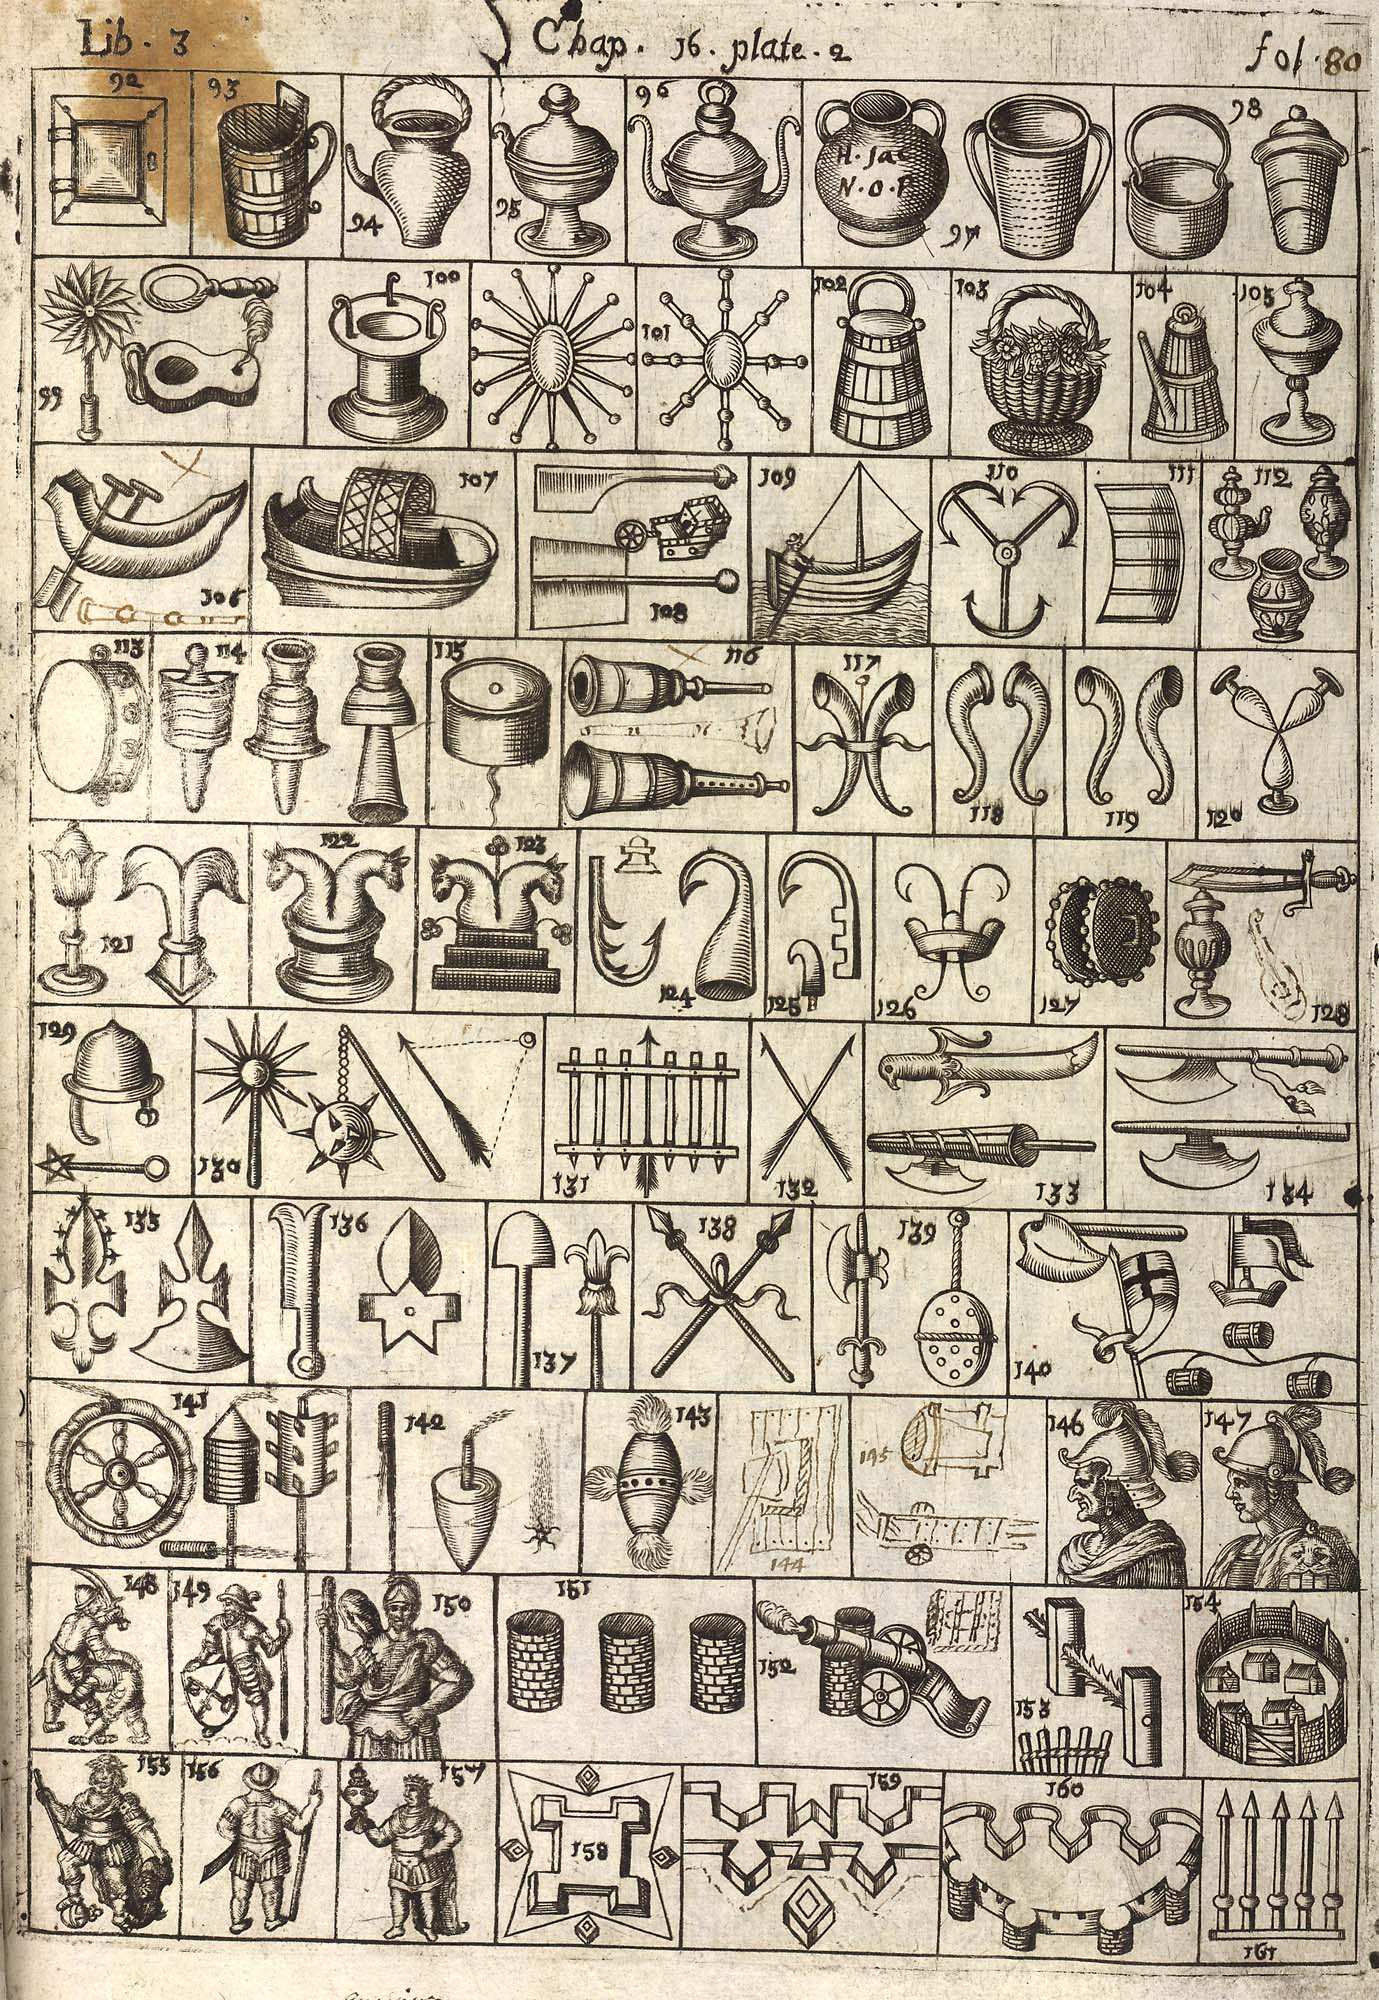 Lib. 3 Chap. 16. plate. 2 fol. 80
92 93 94 95 96 97 98
H. Jac
N. O. P
99 100 101 102 103 104 105
106 107 108 109 110 111 112
113 114 115 116 117 118 119 120
121 122 123 124 125 126 127 128
129 130 131 132 133 134
135 136 137 138 139 140
141 142 143 144 145 146 147
148 149 150 151 152 153 154
155 156 157 158 159 160 161